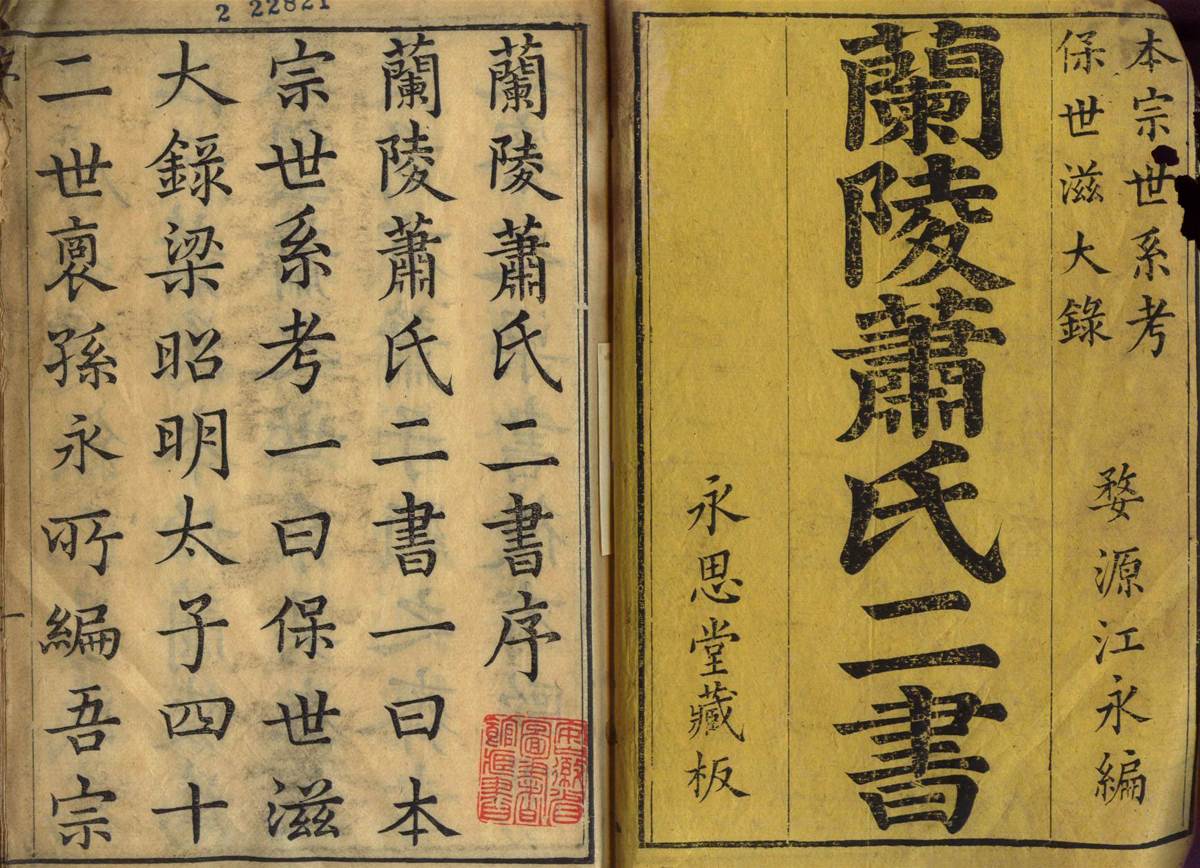 本宗世系考
保世滋大錄
婺源江永編
蘭陵蕭氏二書
永思堂藏板
2 22821
蘭陵蕭氏二書序
安徽省
圖書
館藏書
蘭陵蕭氏二書一曰本
宗世系考一曰保世滋
大錄梁昭明太子四十
二世裔孫永所編吾宗
一